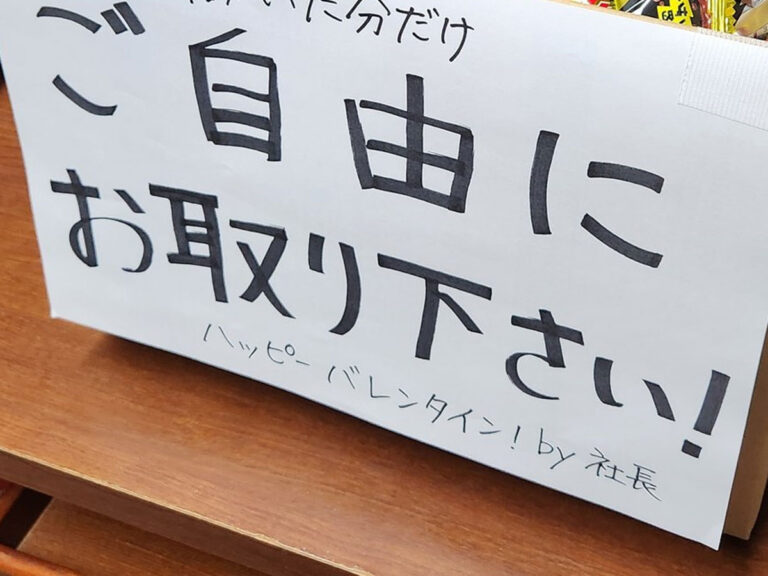 いた分だけ
ご自由に
お取り下さい!
ハッピー バレンタイン! by 社長